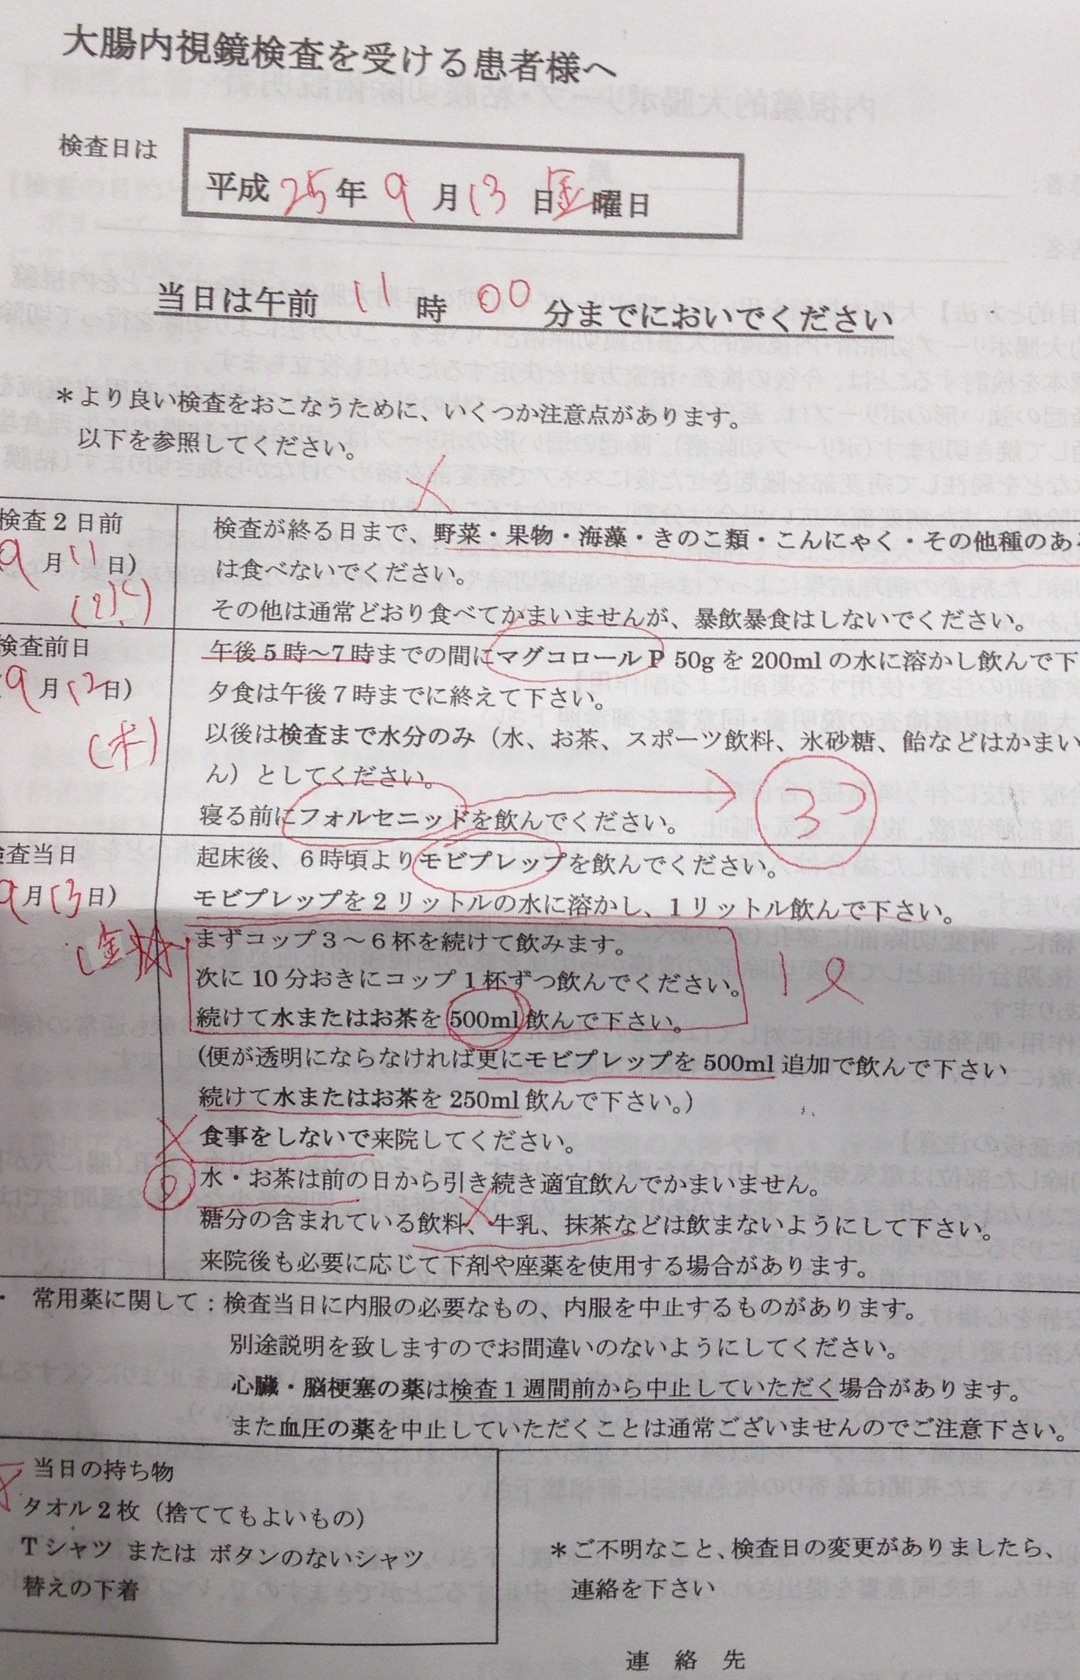 大腸内視鏡検査を受ける患者様へ
検査日は
平成 25 年 9 月 13 日 金 曜日
当日は午前 11 時 00 分までにおいでください
＊より良い検査をおこなうために、いくつか注意点があります。
以下を参照してください。
検査2日前
9月11日)
(水)
検査が終る日まで、野菜・果物・海藻・きのこ類・こんにゃく・その他種のある
は食べないでください。
その他は通常どおり食べてかまいませんが、暴飲暴食はしないでください。
検査前日
9月12日)
(木)
午後5時～7時までの間にマグコロールP 50gを200mlの水に溶かし飲んで下
夕食は午後7時までに終えて下さい。
以後は検査まで水分のみ（水、お茶、スポーツ飲料、氷砂糖、飴などはかまい
ん）としてください。
寝る前にフォルセニッドを飲んでください。
3
検査当日
9月13日)
(金)
起床後、6時頃よりモビプレップを飲んでください。
モビプレップを2リットルの水に溶かし、1リットル飲んで下さい。
まずコップ3～6杯を続けて飲みます。
次に10分おきにコップ1杯ずつ飲んでください。
続けて水またはお茶を500ml飲んで下さい。
1ℓ
(便が透明にならなければ更にモビプレップを500ml追加で飲んで下さい
続けて水またはお茶を250ml飲んで下さい。)
食事をしないで来院してください。
水・お茶は前の日から引き続き適宜飲んでかまいません。
糖分の含まれている飲料、牛乳、抹茶などは飲まないようにして下さい。
来院後も必要に応じて下剤や座薬を使用する場合があります。
・ 常用薬に関して：検査当日に内服の必要なもの、内服を中止するものがあります。
別途説明を致しますのでお間違いのないようにしてください。
心臓・脳梗塞の薬は検査1週間前から中止していただく場合があります。
また血圧の薬を中止していただくことは通常ございませんのでご注意下さい。
当日の持ち物
タオル2枚（捨ててもよいもの）
Tシャツ または ボタンのないシャツ
替えの下着
＊ご不明なこと、検査日の変更がありましたら、
連絡を下さい
連 絡 先